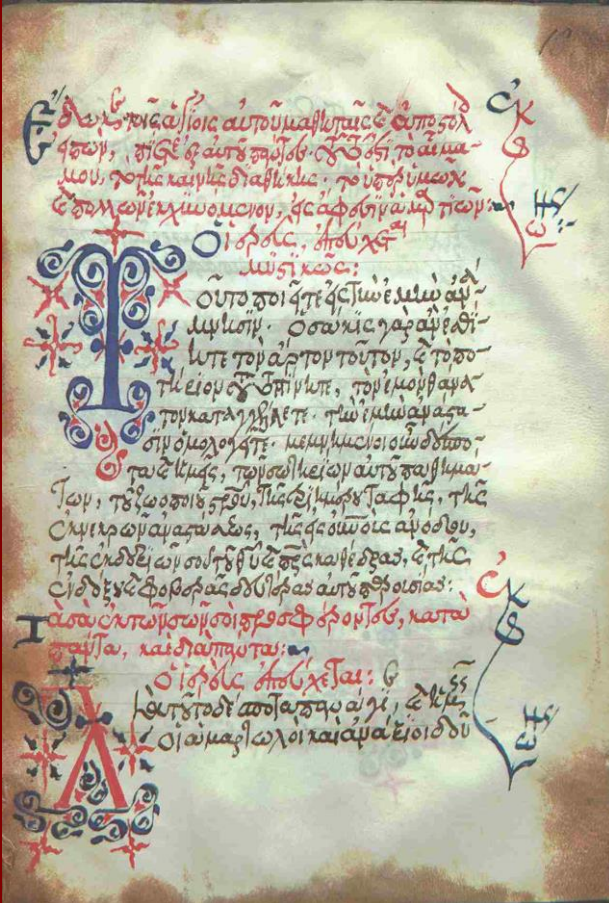 Ἔδωκε τοῖς ἁγίοις αὐτοῦ μαθηταῖς καὶ ἀποστόλ
εἰπών, πίετε ἐξ αὐτοῦ πάντες· τοῦτό ἐστι τὸ αἷμα-
μου, τὸ τῆς καινῆς διαθήκης· τὸ ὑπὲρ ὑμῶν
καὶ πολλῶν ἐκχυνόμενον, εἰς ἄφεσιν ἁμαρτιῶν:
Ὁ ἱερεὺς, ἐπεύχεται
μυστικῶς:
Τοῦτο ποιεῖτε εἰς τὴν ἐμὴν ἀνά-
μνησιν. Ὁσάκις γὰρ ἂν ἐσθί-
ητε τὸν ἄρτον τοῦτον, καὶ τὸ πο-
τήριον τοῦτο πίνητε, τὸν ἐμὸν θάνα-
τον καταγγέλλετε. τὴν ἐμὴν ἀνάστα-
σιν ὁμολογεῖτε. μεμνημένοι οὖν δέσπο-
τα καὶ ἡμεῖς, τῶν σωτηρίων αὐτοῦ παθημά-
των, τοῦ ζωοποιοῦ σταυροῦ, τῆς τριημέρου ταφῆς, τῆς
ἐκ νεκρῶν ἀναστάσεως, τῆς εἰς οὐνοὺς ἀνόδου,
τῆς ἐκ δεξιῶν σου τοῦ θυ καὶ πρς καθέδρας, καὶ τῆς
ἐνδόξου καὶ φοβερᾶς δευτέρας αὐτοῦ παρουσίας:
Τὰ σὰ ἐκ τῶν σῶν σοὶ προσφέροντες, κατὰ
πάντα, καὶ διὰ πάντα:
Ὁ ἱερεὺς ἐπεύχεται:
Διὰ τοῦτο δέσποτα πανάγιε, καὶ ἡμεῖς
οἱ ἁμαρτωλοὶ καὶ ἀνάξιοι δοῦ